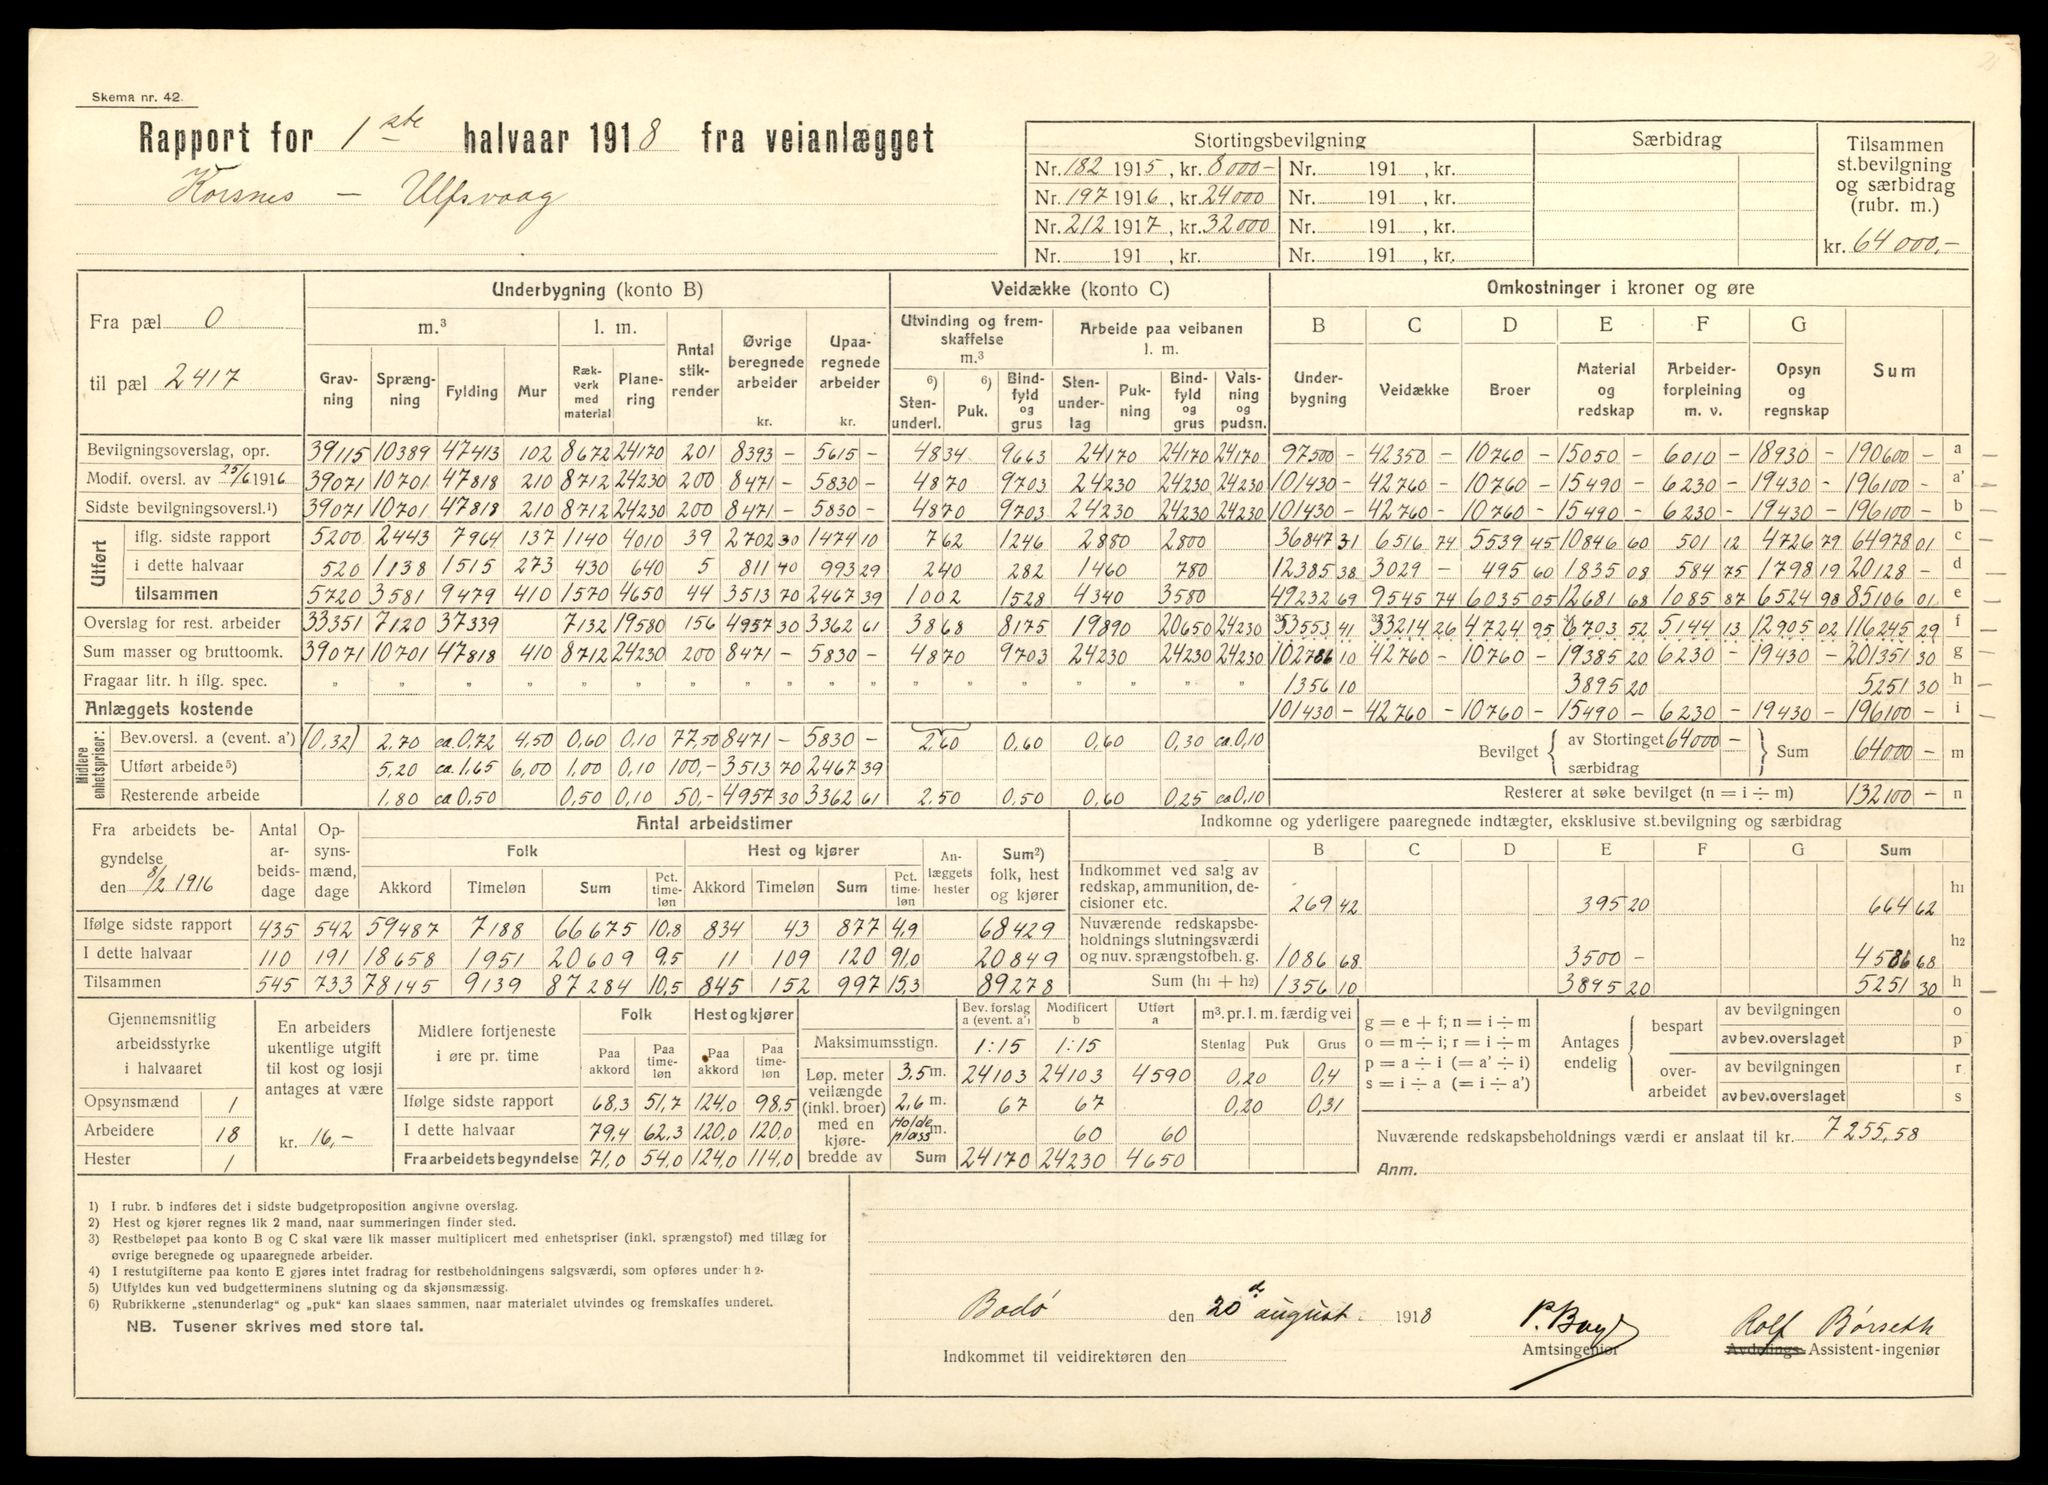 Skema nr. 42.
Rapport for 1ste halvaar 1918 fra veianlægget
Korsnes – Ulfsvaag
Stortingsbevilgning Særbidrag Tilsammen st.bevilgning og særbidrag (rubr. m.)
Nr. 182 1915, kr. 8000- Nr. 191 , kr.
Nr. 197 1916, kr. 24000 Nr. 191 , kr.
Nr. 212 1917, kr. 32000 Nr. 191 , kr.
Nr. 191 , kr. Nr. 191 , kr.
kr. 64000,-
Fra pæl 0
til pæl 2417
Underbygning (konto B) Veidække (konto C) Omkostninger i kroner og øre
m.³ l. m. Antal stikrender Øvrige beregnede arbeider kr. Upaaregnede arbeider kr.
Utvinding og fremskaffelse m.³ Arbeide paa veibanen l. m.
B C D E F G
Gravning Sprængning Fylding Mur Rækverk med material Planering
6) Stenunderl. 6) Puk. Bindfyld og grus Stenunderlag Pukning Bindfyld og grus Valsning og pudsn.
Underbygning Veidække Broer Material og redskap Arbeiderforpleining m. v. Opsyn og regnskap Sum
Bevilgningsoverslag, opr. 39115 10389 47413 102 8672 24170 201 8393 – 5615 – 4834 9663 24170 24170 24170 97500 – 42350 – 10760 – 15050 – 6010 – 18930 – 190600 – a
Modif. oversl. av 25/6 1916 39071 10701 47818 210 8712 24230 200 8471 – 5830 – 4870 9703 24230 24230 24230 101430 – 42760 – 10760 – 15490 – 6230 – 19430 – 196100 – a'
Sidste bevilgningsoversl.¹) 39071 10701 47818 210 8712 24230 200 8471 – 5830 – 4870 9703 24230 24230 24230 101430 – 42760 – 10760 – 15490 – 6230 – 19430 – 196100 – b
Utført
iflg. sidste rapport 5200 2443 7964 137 1140 4010 39 2702 30 1474 10 762 1246 2880 2800 36847 31 6516 74 5539 45 10846 60 501 12 4726 79 64978 01 c
i dette halvaar 520 1138 1515 273 430 640 5 811 40 993 29 240 282 1460 780 12385 38 3029 – 495 60 1835 08 584 75 1798 19 20128 – d
tilsammen 5720 3581 9479 410 1570 4650 44 3513 70 2467 39 1002 1528 4340 3580 49232 69 9545 74 6035 05 12681 68 1085 87 6524 98 85106 01 e
Overslag for rest. arbeider 33351 7120 37339 7132 19580 156 4957 30 3362 61 3868 8175 19890 20650 24230 53553 41 33214 26 4724 95 6703 52 5144 13 12905 02 116245 29 f
Sum masser og bruttoomk. 39071 10701 47818 410 8712 24230 200 8471 – 5830 – 4870 9703 24230 24230 24230 102786 10 42760 – 10760 – 19385 20 6230 – 19430 – 201351 30 g
Fragaar litr. h iflg. spec. " " " " " " " " " " " " " " 1356 10 3895 20 5251 30 h
Anlæggets kostende 101430 – 42760 – 10760 – 15490 – 6230 – 19430 – 196100 – i
Midlere enhetspriser:
Bev.oversl. a (event. a') (0,32) 2.70 ca 0,72 4,50 0,60 0,10 77,50 8471 – 5830 – 2,60 0,60 0,60 0,30 ca 0,10
Utført arbeide⁵) 5,20 ca 1.65 6,00 1,00 0,10 100,- 3513 70 2467 39
Resterende arbeide 1.80 ca 0,50 0,50 0,10 50,- 4957 30 3362 61 2.50 0,50 0,60 0,25 ca 0,10
Bevilget av Stortinget 64000 – særbidrag Sum 64000 – m
Resterer at søke bevilget (n = i ÷ m) 132100 – n
Fra arbeidets begyndelse den 8/2 1916
Antal arbeidsdage Opsynsmænd, dage Antal arbeidstimer
Folk Hest og kjører Anlæggets hester Sum²) folk, hest og kjører
Akkord Timeløn Sum Pct. timeløn Akkord Timeløn Sum Pct. timeløn
Ifølge sidste rapport 435 542 59487 7188 66675 10.8 834 43 877 4,9 68429
I dette halvaar 110 191 18658 1951 20609 9.5 11 109 120 91,0 20849
Tilsammen 545 733 78145 9139 87284 10,5 845 152 997 15,3 89278
Indkomne og yderligere paaregnede indtægter, eksklusive st.bevilgning og særbidrag
B C D E F G Sum
Indkommet ved salg av redskap, ammunition, decisioner etc. 269 42 395 20 664 62 h1
Nuværende redskapsbeholdnings slutningsværdi og nuv. sprængstofbeh. g. 1086 68 3500 – 4586 68 h2
Sum (h1 + h2) 1356 10 3895 20 5251 30 h
Gjennemsnitlig arbeidsstyrke i halvaaret
Opsynsmænd 1
Arbeidere 18
Hester 1
En arbeiders ukentlige utgift til kost og losji antages at være
kr. 16,-
Midlere fortjeneste i øre pr. time
Folk Hest og kjører
Paa akkord Paa timeløn Paa akkord Paa timeløn
Ifølge sidste rapport 68,3 51,7 124,0 98,5
I dette halvaar 79,4 62,3 120,0 120,0
Fra arbeidets begyndelse 71,0 54,0 124,0 114,0
Bev. forslag a (event. a') Modificert b Utført a
Maksimumsstign. 1:15 1:15
Løp. meter veilængde (inkl. broer) med en kjørebredde av
3,5 m. 24103 24103 4590
2,6 m. 67 67
Holdeplass m. 60 60
Sum 24170 24230 4650
m³. pr. l. m. færdig vei
Stenlag Puk Grus
0,20 0,4
0,20 0,31
g = e + f; n = i ÷ m
o = m ÷ i; r = i ÷ m
p = a ÷ i (= a' ÷ i)
s = i ÷ a (= i ÷ a')
Antages endelig
bespart av bevilgningen o
av bev.overslaget p
overarbeidet av bevilgningen r
av bev.overslaget s
Nuværende redskapsbeholdnings værdi er anslaat til kr. 7255,58
Anm.
1) I rubr. b indføres det i sidste budgetproposition angivne overslag.
2) Hest og kjører regnes lik 2 mand, naar summeringen finder sted.
3) Restbeløpet paa konto B og C skal være lik masser multiplicert med enhetspriser (inkl. sprængstof) med tillæg for
øvrige beregnede og upaaregnede arbeider.
4) I restutgifterne paa konto E gjøres intet fradrag for restbeholdningens salgsværdi, som opføres under h 2.
5) Utfyldes kun ved budgetterminens slutning og da skjønsmæssig.
6) Rubrikkerne „stenunderlag“ og „puk“ kan slaaes sammen, naar materialet utvindes og fremskaffes underet.
NB. Tusener skrives med store tal.
Bodö den 20de august 1918
Indkommet til veidirektøren den
Amtsingeniør
Rolf Börseth
Avdelings- Assistent-ingeniør